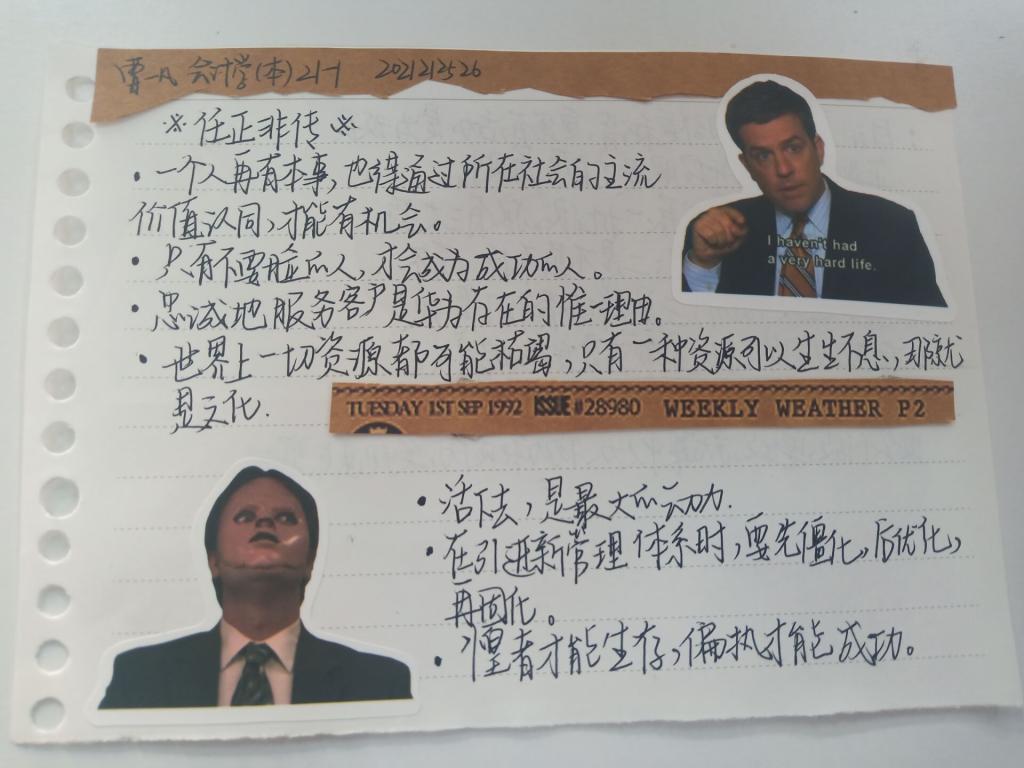 曹一凡 会计学(本)21-1 2021212526
※任正非传※
I haven't had
a very hard life.
·一个人再有本事,也得通过所在社会的主流
价值认同,才能有机会。
·只有不要脸的人,才会成为成功的人。
·忠诚地服务客户是华为存在的惟一理由。
·世界上一切资源都可能枯竭,只有一种资源可以生生不息,那就
是文化.
TUESDAY 1ST SEP 1992 ISSUE #28980 WEEKLY WEATHER P2
·活下去,是最大的动力.
·在引进新管理体系时,要先僵化,后优化,
再固化。
·惶者才能生存,偏执才能成功。